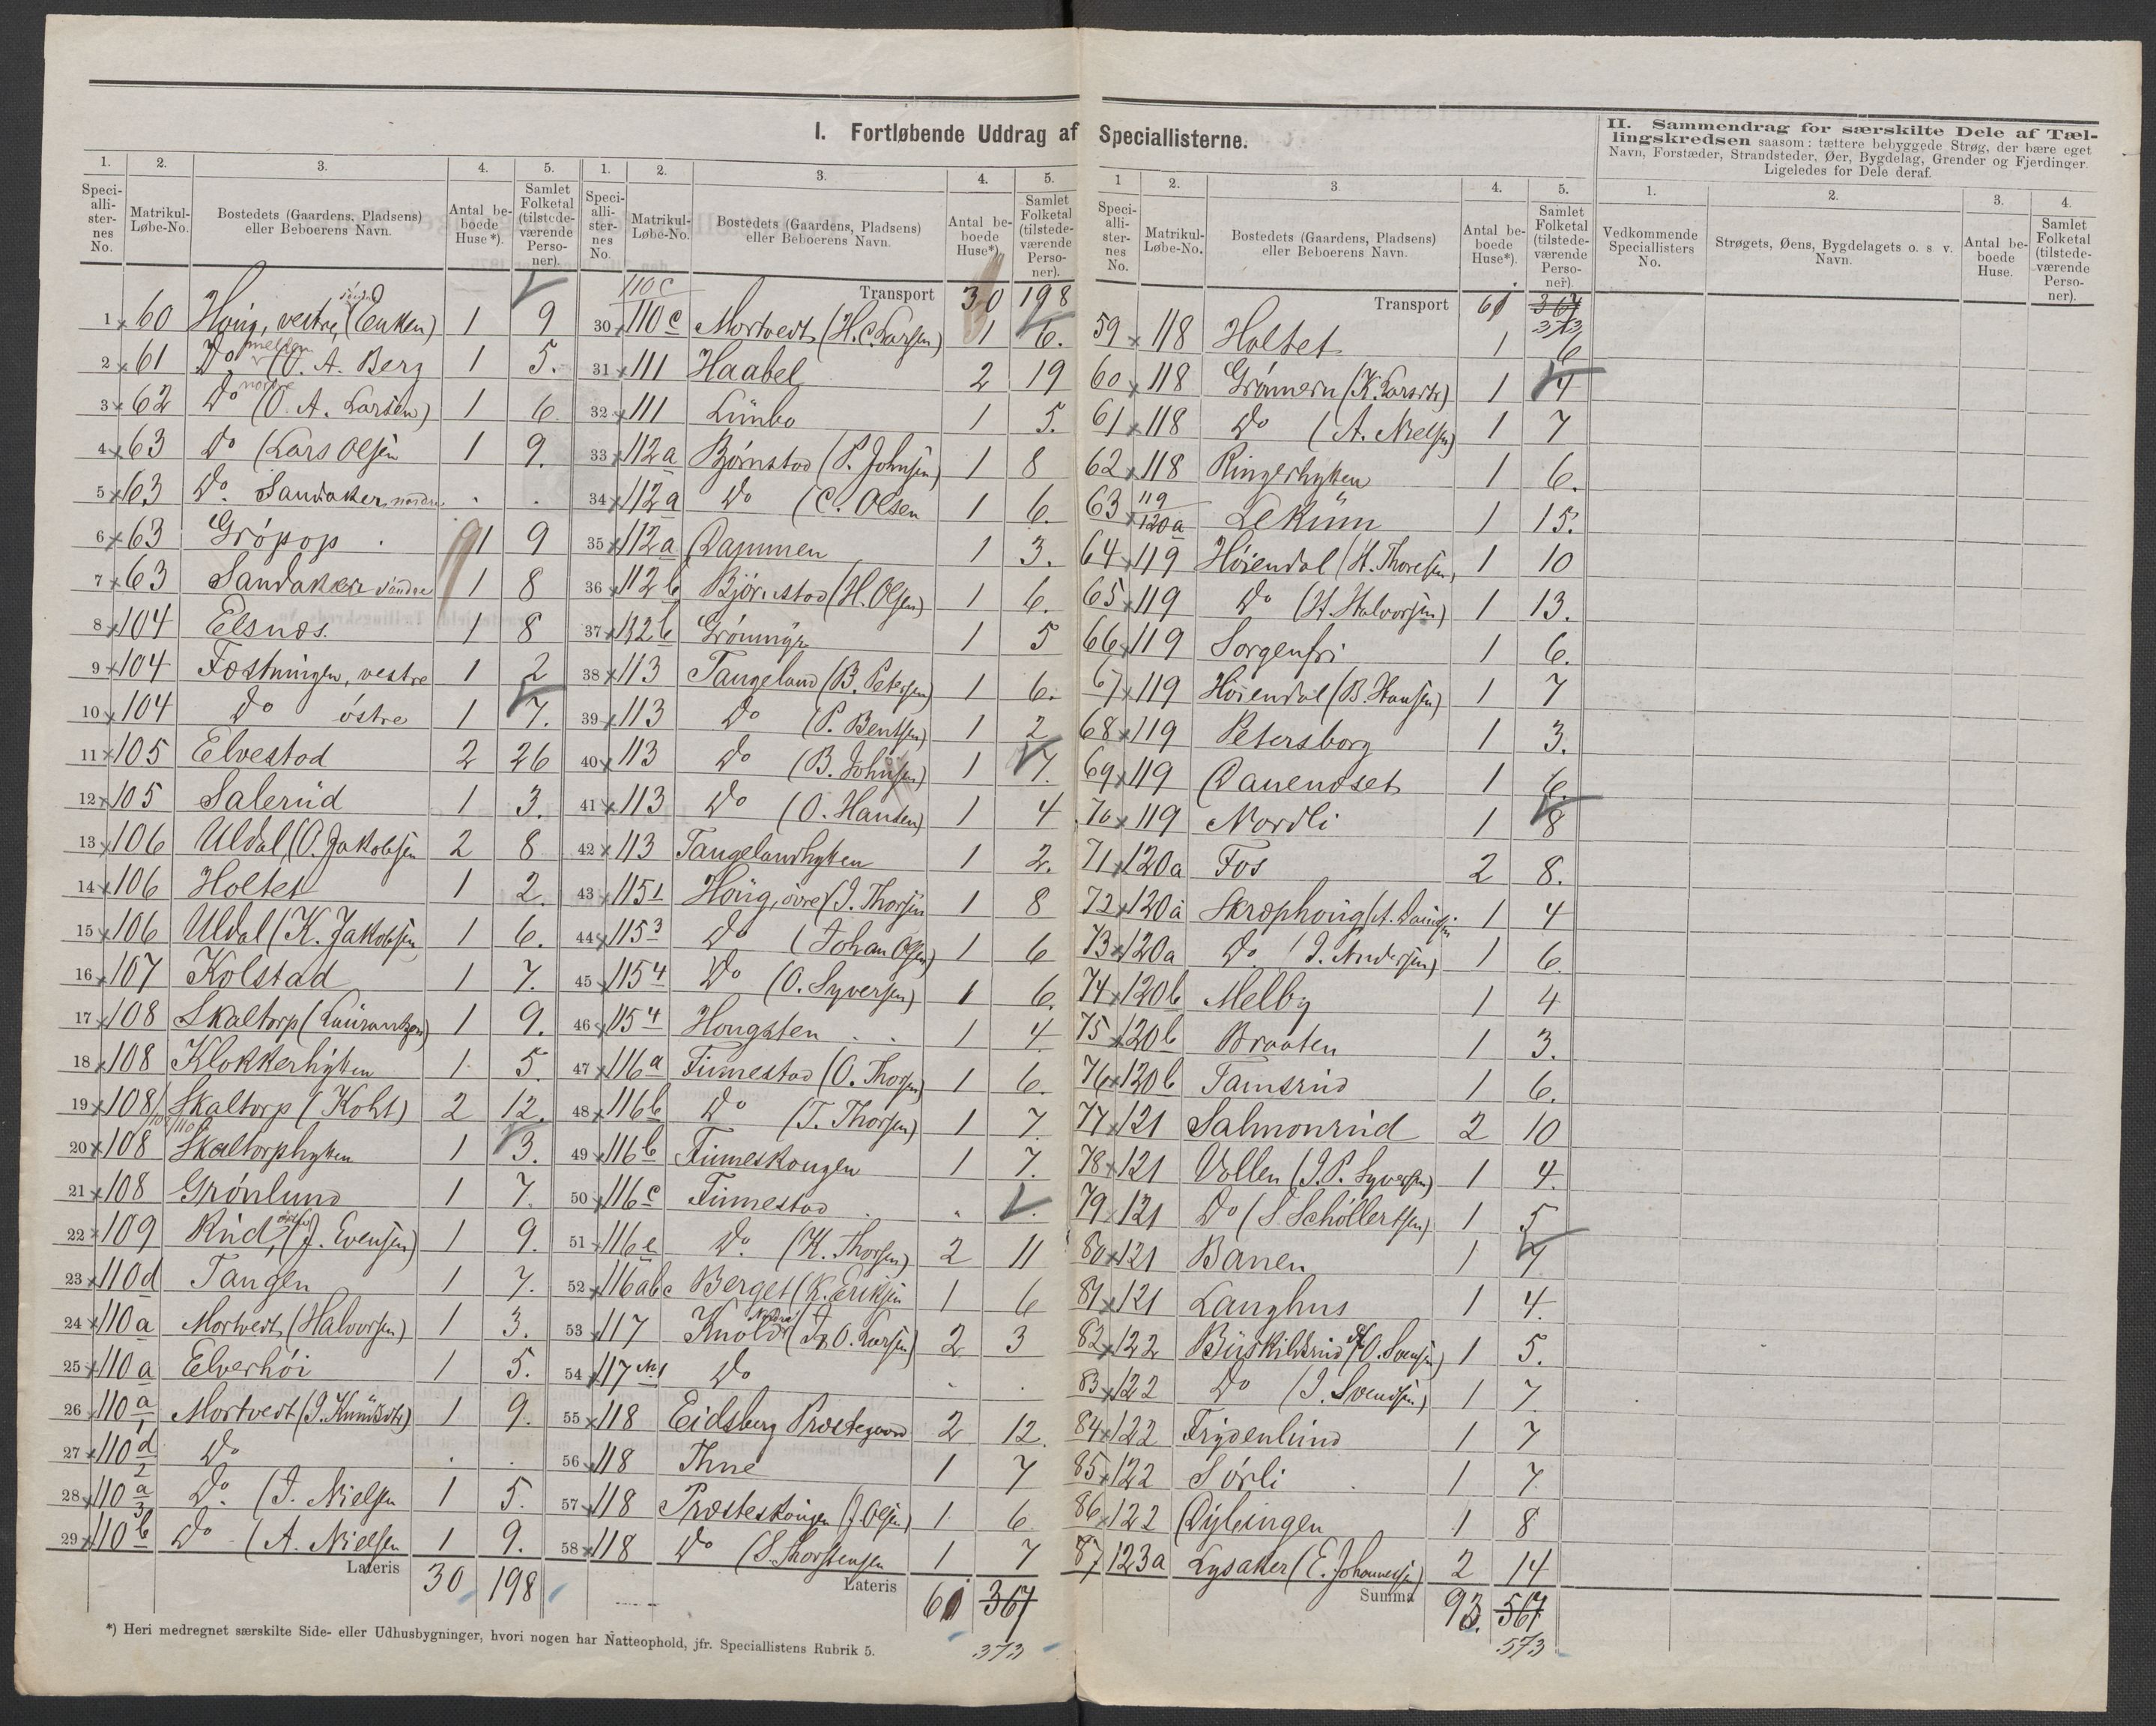 I. Fortløbende Uddrag af Speciallisterne.
II. Sammendrag for særskilte Dele af Tæl-
lingskredsen saasom: tættere bebyggede Strøg, der bære eget
Navn, Forstæder, Strandsteder, Øer, Bygdelag, Grender og Fjerdinger.
Ligeledes for Dele deraf.
1. 2. 3. 4. 5.
Speciallisternes No. Matrikul-Løbe-No. Bostedets (Gaardens, Pladsens) eller Beboerens Navn. Antal beboede Huse*). Samlet Folketal (tilstedeværende Personer).
1 60 Houg, vestre, (Enken) 1 9
2 61 Do mellem (O. A. Berg 1 5.
3 62 Do nordre (O. A. Larsen) 1 6
4 63 Do (Lars Olsen 1 9.
5 63 Do. Sandaker nordre . .
6 63 Grøpop . 1 9
7 63 Sandaker søndre 1 8
8 104 Elsnes. 1 8
9 104 Fostningen, vestre 1 2
10 104 Do østre 1 7.
11 105 Elvestad 2 26
12 105 Salerud 1 3.
13 106 Uldal (O. Jakobsen 2 8
14 106 Holtet 1 2.
15 106 Uldal (K. Jakobsen 1 6.
16 107 Kolstad 1 7.
17 108 Skaltorp (Laurantzen) 1 9.
18 108 Klokkerhytten 1 5.
19 108/109/110 Skaltorp (Koht) 2 12.
20 108 Skaltorphytten 1 3.
21 108 Grønlund 1 7.
22 109 Rud, (J. Evensen) 1 9.
23 110d Tangen 1 7.
24 110a Mortvedt (Halvorsen) 1 3.
25 110a Elverhøi 1 5.
26 110a/1 Mortvedt (J. Knudsdtr) 1 9.
27 110d/2 Do . .
28 110a/3 Do. (J. Nielsen 1 5.
29 110b Do (A. Nielsen 1 9.
Lateris 30 198
1. 2. 3. 4. 5.
Speciallisternes No. Matrikul-Løbe-No. Bostedets (Gaardens, Pladsens) eller Beboerens Navn. Antal beboede Huse*). Samlet Folketal (tilstedeværende Personer).
110c Transport 30 198
30 110c Mortvedt (H. C. Larsen) 1 6.
31 111 Haabel 2 19
32 111 Lunbo 1 5.
33 112a Bjørnstad (P. Johnsen) 1 8
34 112a Do (C. Olsen 1 6.
35 112a Dammen 1 3.
36 112b Bjørnstad (H. Olsen) 1 6.
37 112b Grønmyr 1 5
38 113 Tangeland (B. Petersen) 1 6.
39 113 Do (P. Bentsen) 1 2
40 113 Do (B. Johnsen) 1 7.
41 113 Do (O. Hansen) 1 4
42 113 Tangelandhytten 1 2.
43 115 1 Houg, øvre (J. Thorsen 1 8
44 115 3 Do (Johan Olsen) 1 6
45 115 4 Do (O. Syversen) 1 6.
46 115 4 Hougsten . . 1 4
47 116a Finnestad (O. Thorsen) 1 6.
48 116b Do (T. Thorsen) 1 7.
49 116b Finneskougen 1 7.
50 116c Finnestad . . .
51 116e Do. (K. Thorsen) 2 11
52 116abc Berget (K. Eriksen 1 6
53 117 Knold nedre (O. Larsen) 2 3
54 117 Do . .
55 118 Eidsberg Prestegaard 2 12.
56 118 Thne 1 7
57 118 Presteskougen (J Olsen) 1 6
58 118 Do (S. Thorstensen 1 7
Lateris 61 367
373
1 2. 3. 4. 5.
Speciallisternes No. Matrikul-Løbe-No. Bostedets (Gaardens, Pladsens) eller Beboerens Navn. Antal beboede Huse*). Samlet Folketal (tilstedeværende Personer).
Transport 61 367
373
59 118 Holtet 1 6
60 118 Grønnern (K. Larsdtr) 1 4
61 118 Do (A. Nielsen) 1 7
62 118 Ringerhytten 1 6.
63 119/120a Lekum 1 15.
64 119 Høiendal (H. Thoresen) 1 10
65 119 Do (H. Halvorsen) 1 13.
66 119 Sorgenfri 1 6.
67 119 Høiendal (B. Hansen) 1 7
68 119 Petersborg 1 3.
69 119 Dauendset 1 6.
70 119 Nordli 1 8
71 120a Fos 2 8.
72 120a Skrophoug (A. Davidsen 1 4
73 120a Do (J. Andersen) 1 6.
74 120b Melby 1 4
75 120b Braaten 1 3.
76 120b Tamsrud 1 6.
77 121 Salmonrud 2 10
78 121 Vollen (J. P. Syversen) 1 4.
79 121 Do (S. Schöllertsen) 1 5
80 121 Banen 1 7
81 121 Langhus 1 4.
82 122 Buskildsrud (O. Svensen) 1 5.
83 122 Do (J. Svendsen) 1 7.
84 122 Frydenlund 1 7
85 122 Sørli . 1 7.
86 122 Dybingen 1 8
87 123a Lysaker (E. Johannesen) 2 14
Summa 93. 567
573
1. 2. 3. 4.
Vedkommende Speciallisters No. Strøgets, Øens, Bygdelagets o. s. v. Navn. Antal beboede Huse. Samlet Folketal (tilstedeværende Personer).
*) Heri medregnet særskilte Side- eller Udhusbygninger, hvori nogen har Natteophold, jfr. Speciallistens Rubrik 5.